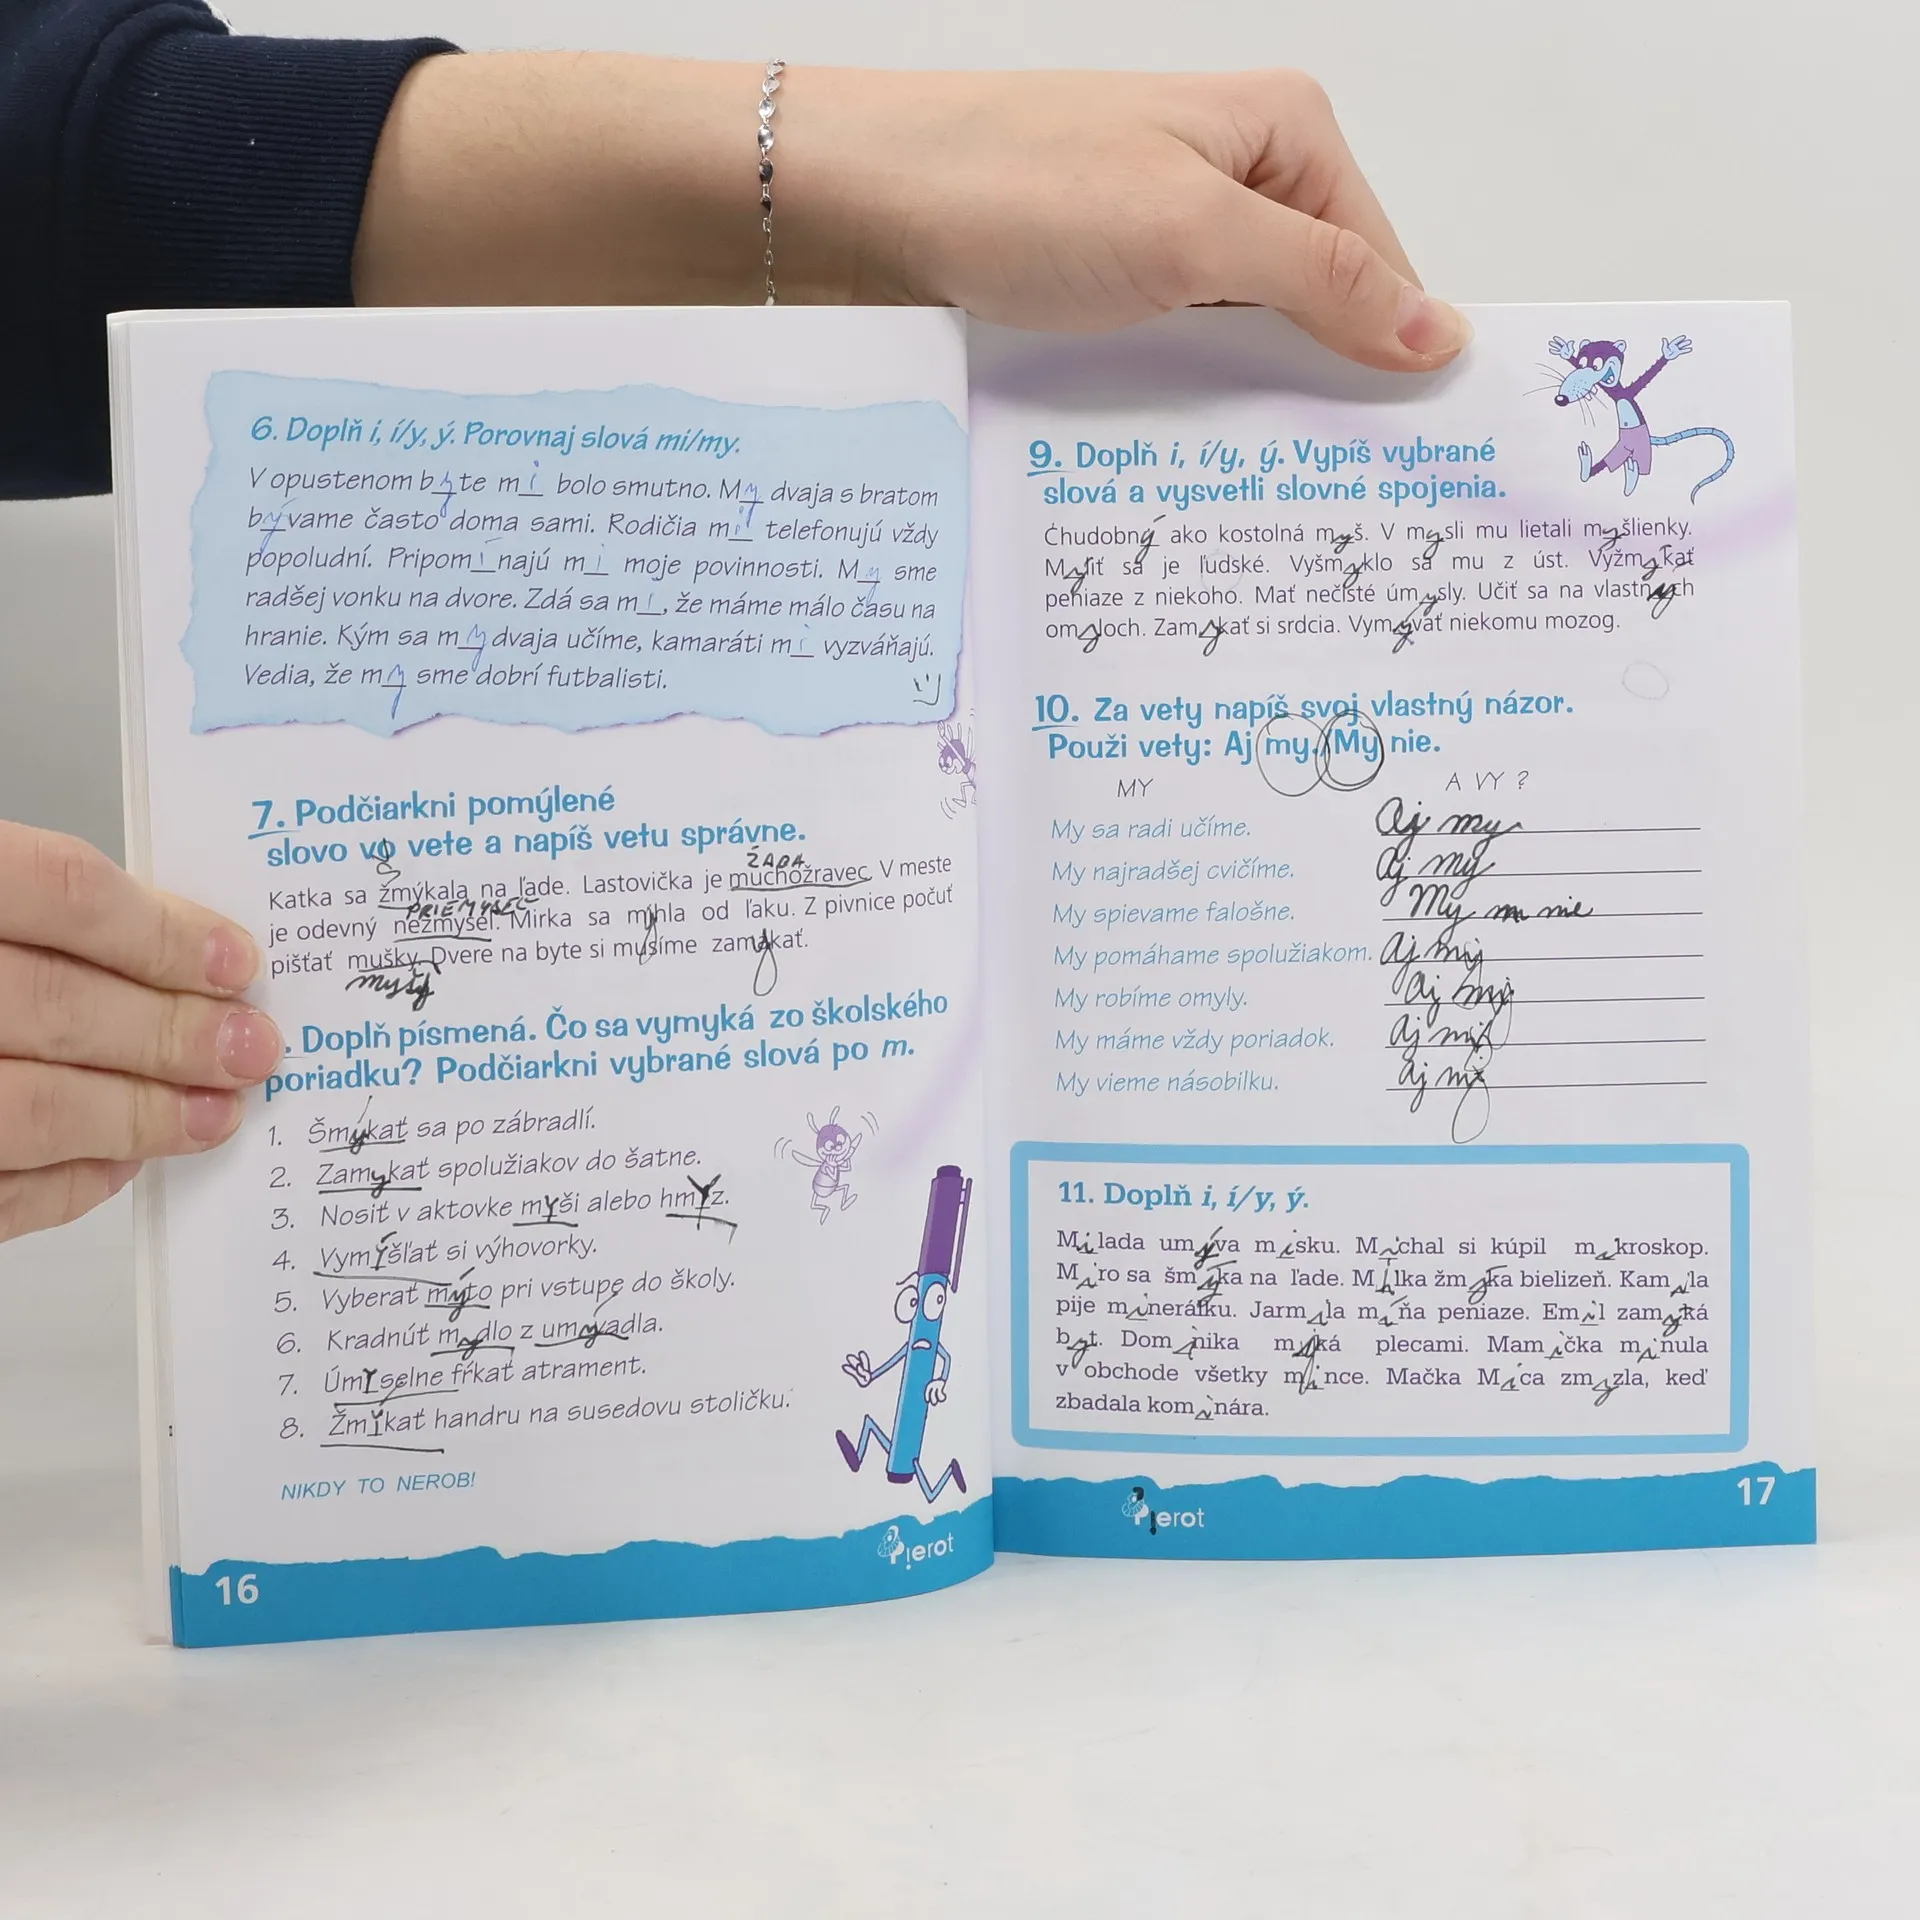 6. Doplň i, í/y, ý. Porovnaj slová mi/my.
V opustenom byte mi bolo smutno. My dvaja s bratom
bývame často doma sami. Rodičia mi telefonujú vždy
popoludní. Pripomínajú mi moje povinnosti. My sme
radšej vonku na dvore. Zdá sa mi, že máme málo času na
hranie. Kým sa my dvaja učíme, kamaráti mi vyzváňajú.
Vedia, že my sme dobrí futbalisti.
7. Podčiarkni pomýlené
slovo vo vete a napíš vetu správne.
ŽABA
Katka sa žmýkala na ľade. Lastovička je muchožravec. V meste
PRIEMYSEL
je odevný nezmysel. Mirka sa mýhla od ľaku. Z pivnice počuť
pišťať mušky. Dvere na byte si musíme zamykať.
myšy
. Doplň písmená. Čo sa vymyká zo školského
poriadku? Podčiarkni vybrané slová po m.
1. Šmýkať sa po zábradlí.
2. Zamykať spolužiakov do šatne.
3. Nosiť v aktovke myši alebo hmyz.
4. Vymýšľať si výhovorky.
5. Vyberať mýto pri vstupe do školy.
6. Kradnúť mydlo z umývadla.
7. Úmyselne fŕkať atrament.
8. Žmýkať handru na susedovu stoličku.
NIKDY TO NEROB!
Pierot
16
9. Doplň i, í/y, ý. Vypíš vybrané
slová a vysvetli slovné spojenia.
Chudobný ako kostolná myš. V mysli mu lietali myšlienky.
Mýliť sa je ľudské. Vyšmyklo sa mu z úst. Vyžmýkať
peniaze z niekoho. Mať nečisté úmysly. Učiť sa na vlastných
omyloch. Zamykať si srdcia. Vymývať niekomu mozog.
10. Za vety napíš svoj vlastný názor.
Použi vety: Aj my./My nie.
MY A VY ?
My sa radi učíme. Aj my
My najradšej cvičíme. Aj my
My spievame falošne. My nie
My pomáhame spolužiakom. Aj my
My robíme omyly. Aj my
My máme vždy poriadok. Aj my
My vieme násobilku. Aj my
11. Doplň i, í/y, ý.
Milada umýva misku. Michal si kúpil mikroskop.
Miro sa šmýka na ľade. Milka žmýka bielizeň. Kamila
pije minerálku. Jarmila míňa peniaze. Emil zamyká
byt. Dominika myká plecami. Mamička minula
v obchode všetky mince. Mačka Mica zmyzla, keď
zbadala kominára.
Pierot
17